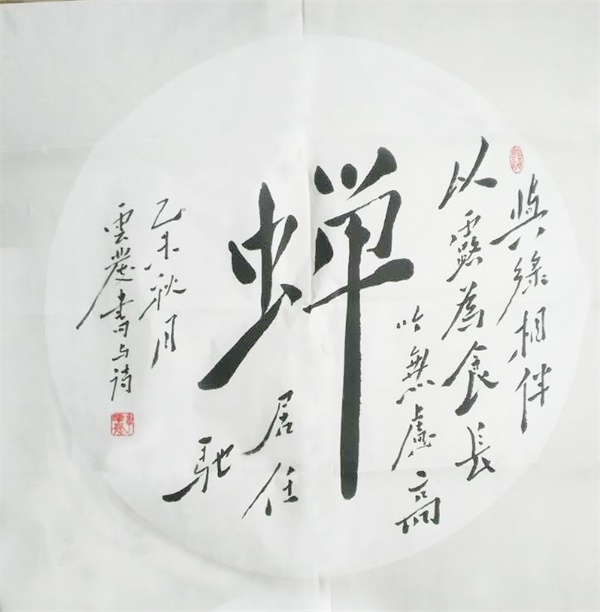 與綠相伴
以露為食長
吟無慮高
蝉
居任
馳
乙未秋月
雲
書与诗